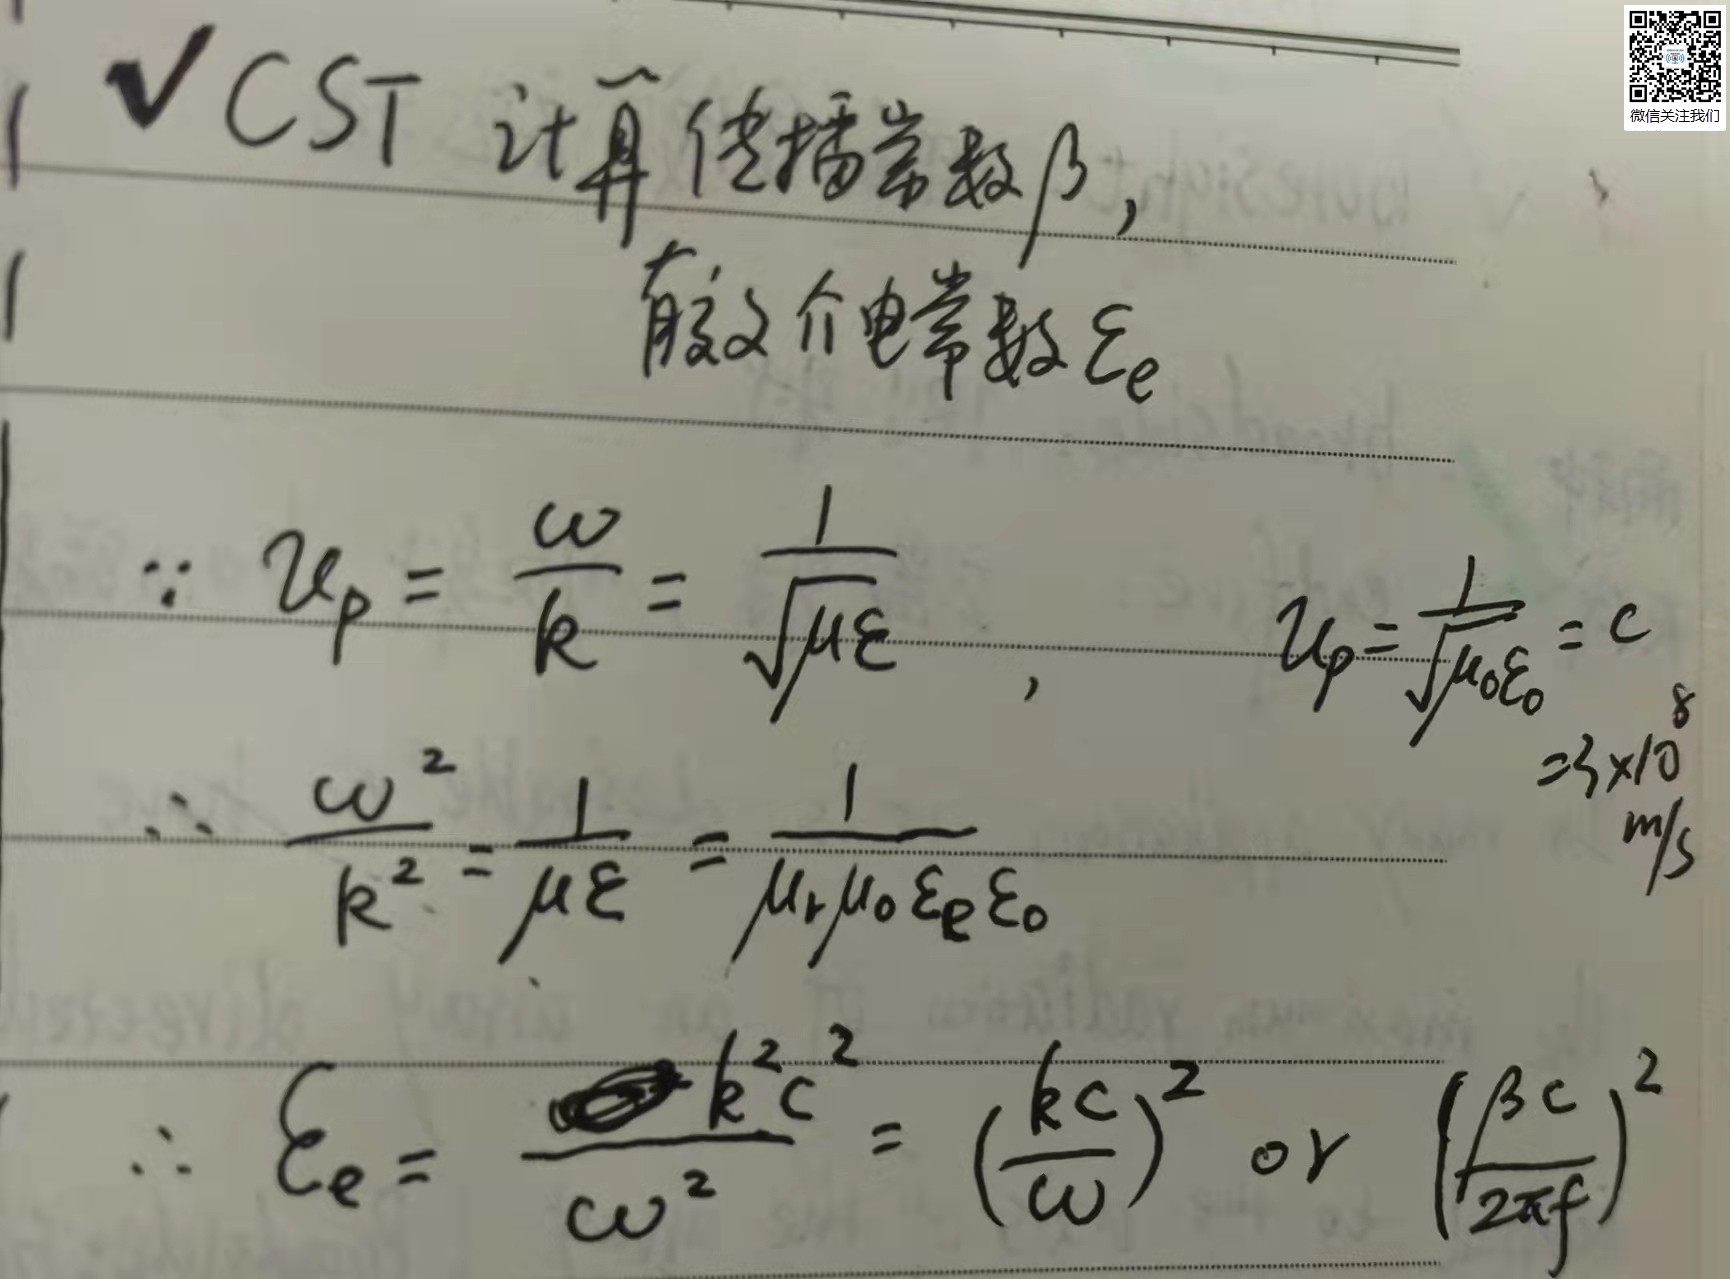 ✓CST 计算传播常数β,
有效介电常数 εe
∵ up = ω/k = 1/√(με) , up = 1/√(μ0ε0) = c
=3×10^8
m/s
∴ ω²/k² = 1/(με) = 1/(μrμ0εeε0)
∴ εe = k²c²/ω² = (kc/ω)² or (βc/2πf)²
微信关注我们